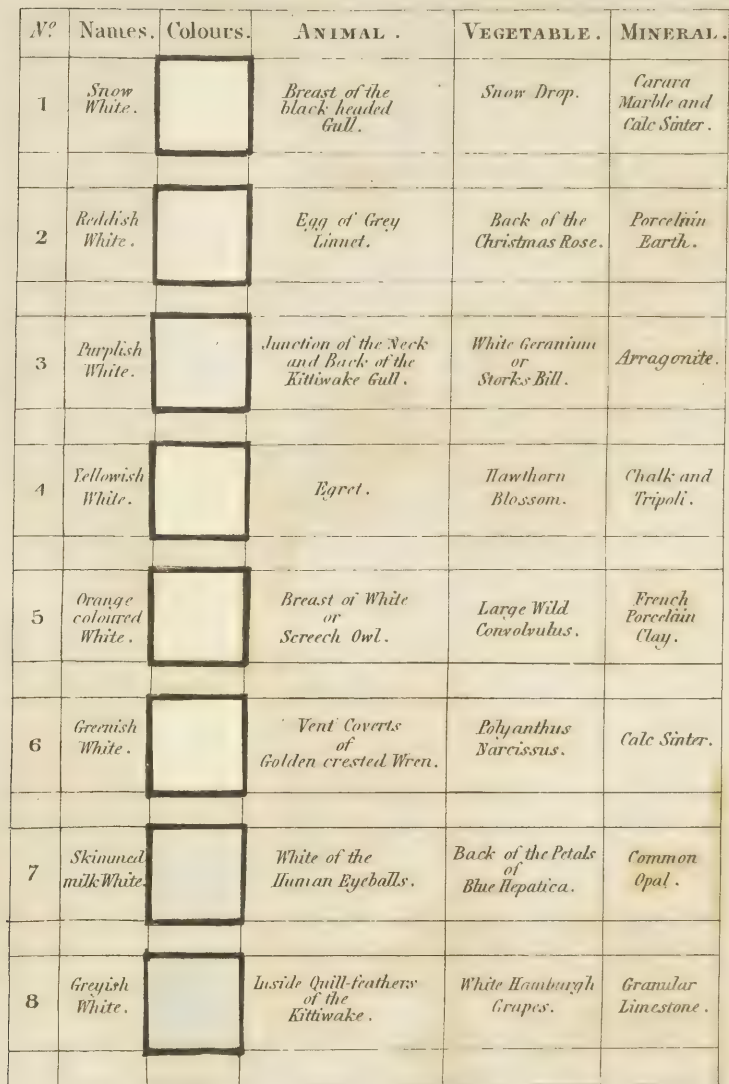 Nº Names. Colours. ANIMAL. VEGETABLE. MINERAL.
1
Snow
White.
Breast of the
black headed
Gull.
Snow Drop.
Carara
Marble and
Calc Sinter.
2
Reddish
White.
Egg of Grey
Linnet.
Back of the
Christmas Rose.
Porcelain
Earth.
3
Purplish
White.
Junction of the Neck
and Back of the
Kittiwake Gull.
White Geranium
or
Storks Bill.
Arragonite.
4
Yellowish
White.
Egret.
Hawthorn
Blossom.
Chalk and
Tripoli.
5
Orange
coloured
White.
Breast of White
or
Screech Owl.
Large Wild
Convolvulus.
French
Porcelain
Clay.
6
Greenish
White.
Vent Coverts
of
Golden crested Wren.
Polyanthus
Narcissus.
Calc Sinter.
7
Skimmed
milk White.
White of the
Human Eyeballs.
Back of the Petals
of
Blue Hepatica.
Common
Opal.
8
Greyish
White.
Inside Quill-feathers
of the
Kittiwake.
White Hamburgh
Grapes.
Granular
Limestone.